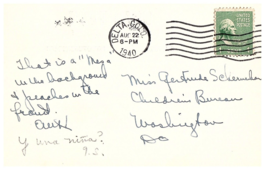 DELTA, COLO.
AUG 22
6-PM
1940
UNITED STATES
That is a "Mesa
in the background
& peaches in the
front.
Y una niña?
Miss Gertrude
Children's Bureau
Washington
DC